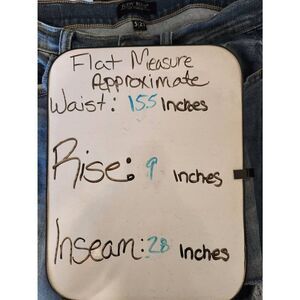 Flat Measure
Approximate
Waist: 15.5 Inches
Rise: 9 Inches
Inseam: 28 Inches